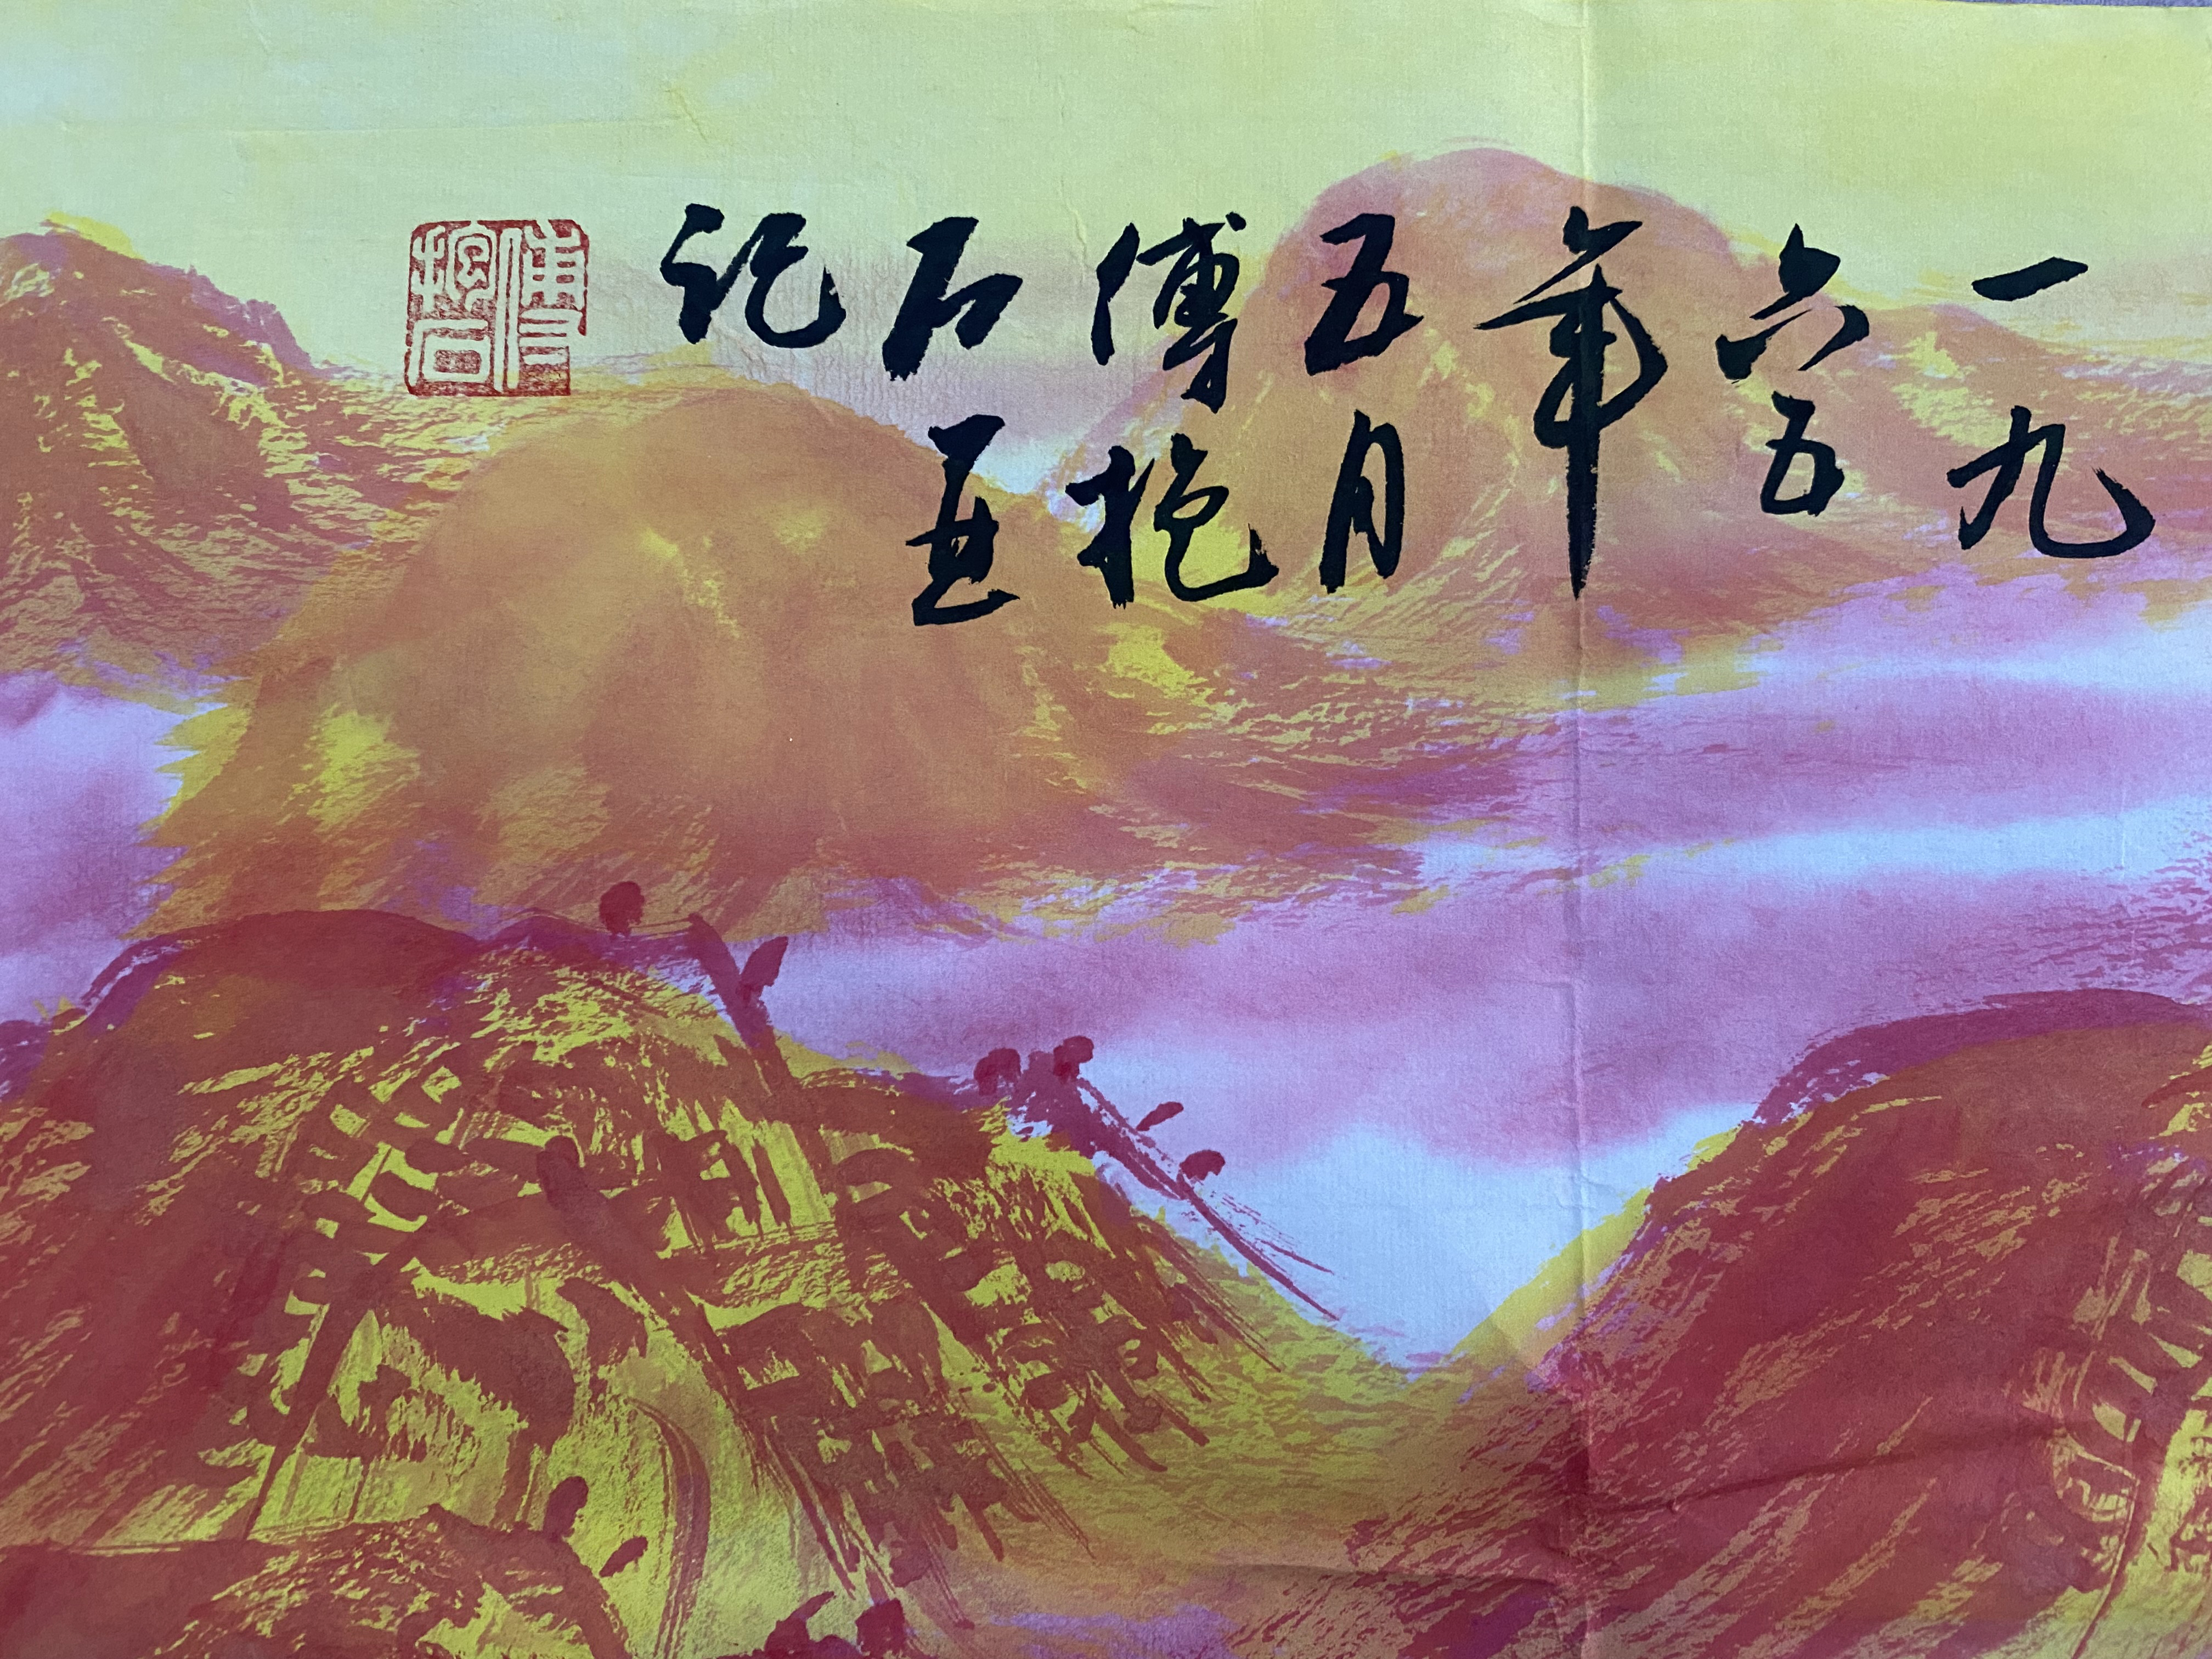 一九
六五
年
五月
傅抱
石並
记
傅抱石